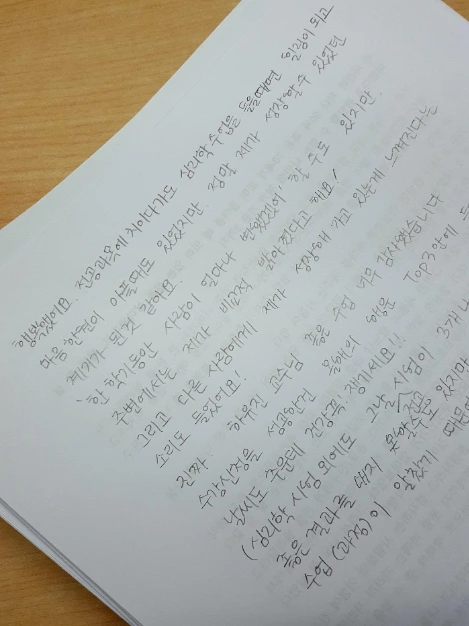 행복했어요. 전공과목에 치이다가도 심리학 수업을 들을때면 힐링이 되고
마음 한켠이 아플때도 있었지만, 정말 제가 성장할 수 있었던
계기가 된것 같아요.
'한 학기동안 사람이 얼마나 변했겠어' 할 수도 있지만.
주변에서는 제가 비교적 밝아졌다고 해요!
그리고 다른 사람에게 제가 성장해 가고 있는게 느껴진다는
소리도 들었어요!
진짜 하유진 교수님 좋은 수업 너무 감사했습니다
수강신청을 성공한건 올해의 행운 Top3 안에
날씨도 추운데 건강꼭! 챙기세요!!
(심리학 시험 외에도 그날 시험이 3개나
좋은 결과를 내지 못할수도 있지만
수업 (과정)이 알찼기 때문